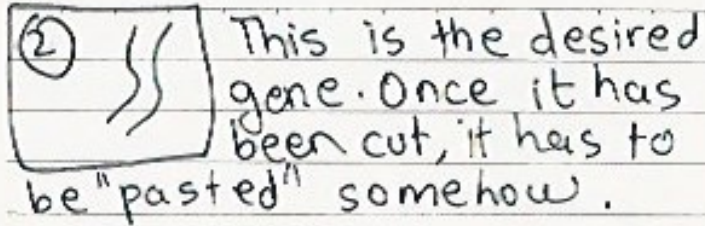 ② This is the desired
gene. Once it has
been cut, it has to
be "pasted" somehow.